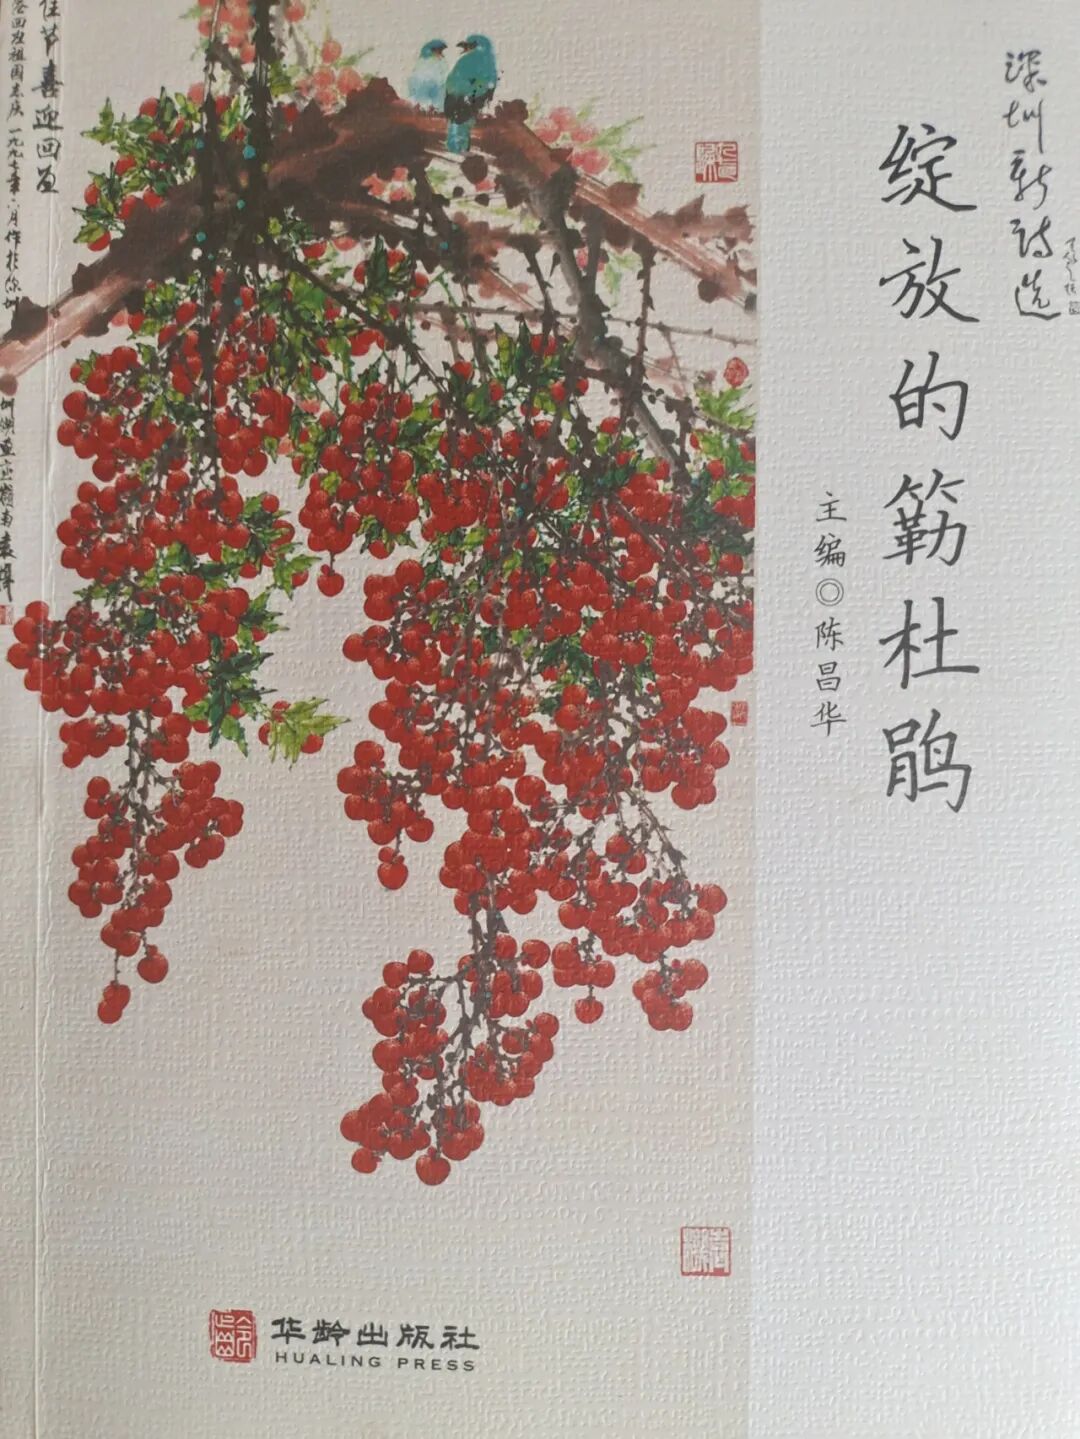 深圳新诗选
绽放的簕杜鹃
主编◎陈昌华
佳节喜迎回归
港回归祖国志庆一九九七年六月作于深圳
华龄出版社
HUALING PRESS